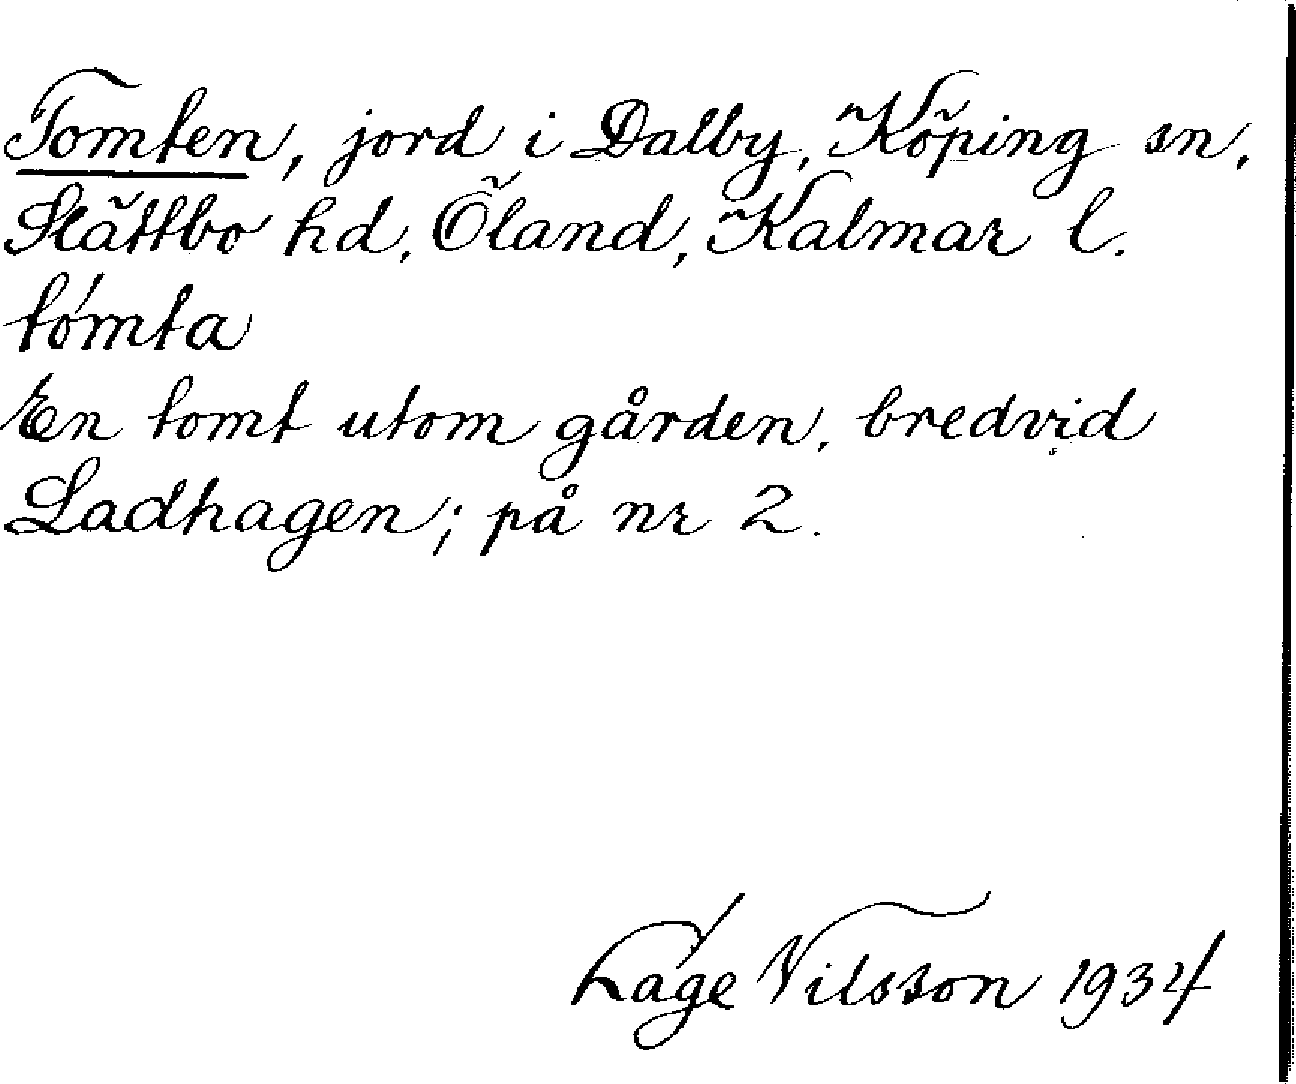 Tomten, jord i Dalby, Köping sn,
Slättbo hd, Öland, Kalmar l.
tómta
En tomt utom gården, bredvid
Ladhagen; på nr 2.
Låge Nilsson 1934